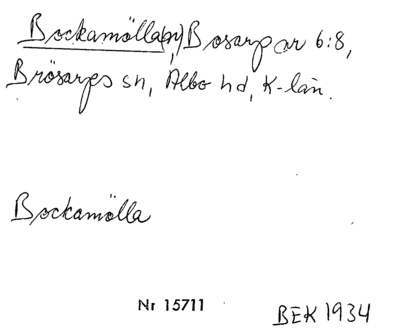 Bockamölla(n), Bosarp ar 6:8,
Brösarps sn, Albo hd, K-län.
Bockamölla
Nr 15711
BEK 1934